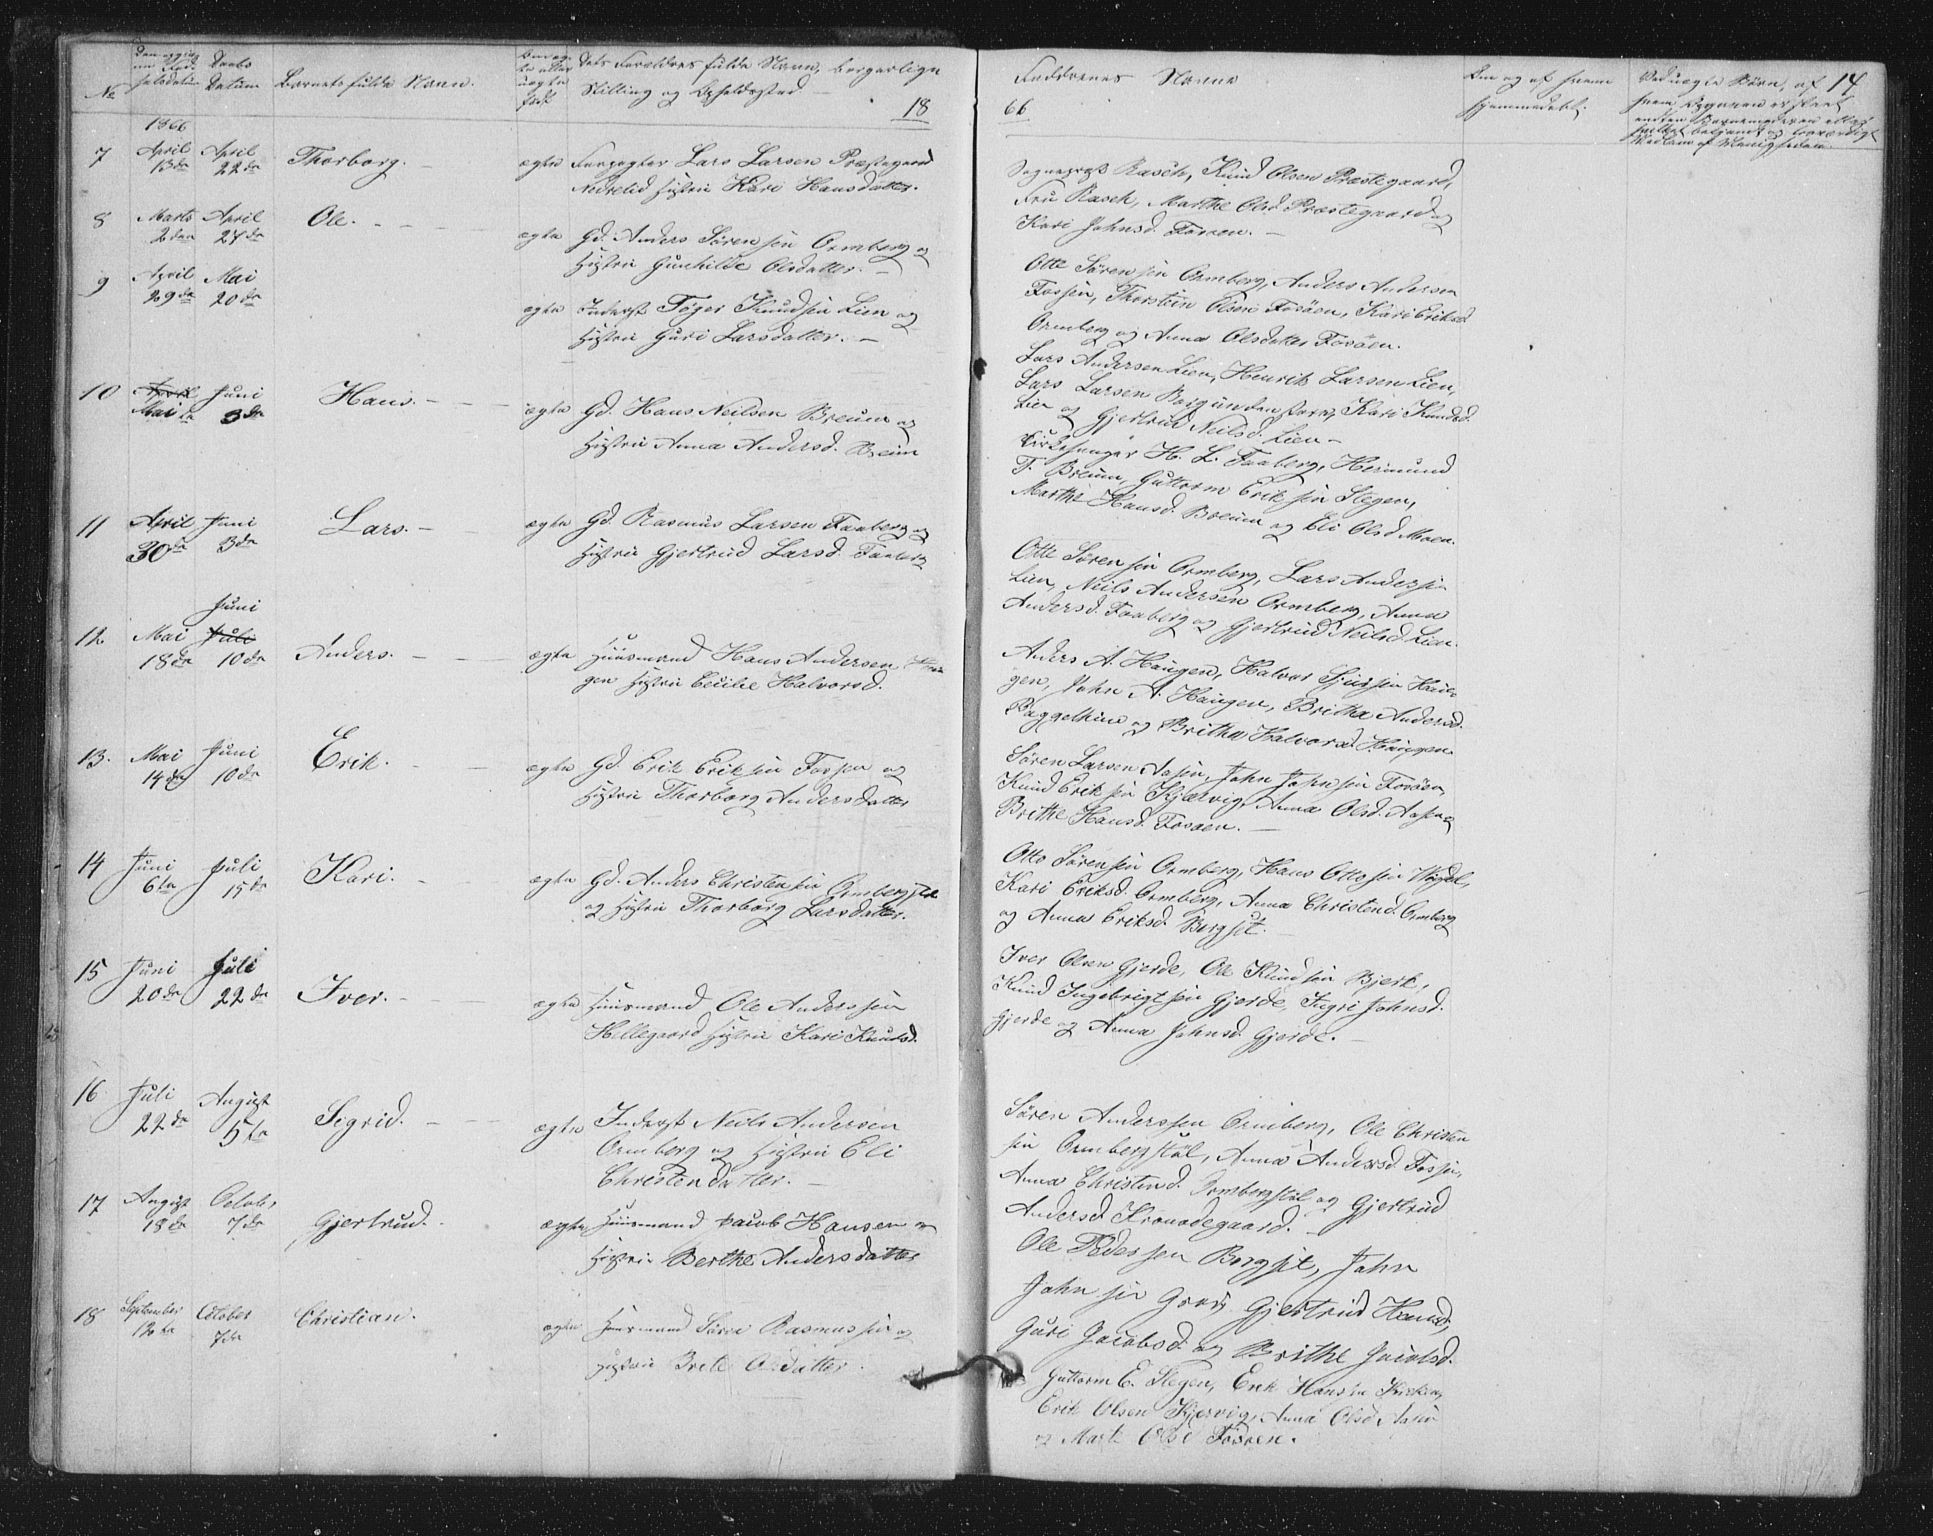 No
Daabs
Datum
Barnets fulde Navn.
Dets Forældres fulde Navn, borgerlige
Stilling og Opholdssted
18
66
Faddernes Navne
hjemmedøbt.
14
1866
7
April
13de
April
22de
Thorborg.
ægte
Lars Larsen Præstegaard
Hustru Kari Hansdatter.
Rasch, Knud Olsen Præstegaard,
Fru Rasch, Marthe Olsd Præstegaard og
Kari Johnsd. Fosöen.
8
Marts
2den
April
27de
Ole.
ægte
Gd. Anders Sörensen Ormberg og
Hustru Gunhilde Olsdatter.
Otte Sörensen Ormberg, Anders Andersen
Fossen, Thorstein Olsen Fosöen, Kari Eriksd.
Ormberg og Anna Olsdatter Fosöen.
9
April
29de
Mai
20de
ægte
Inderst Töger Knudsen Lien og
Hustru Guri Larsdatter.
Lars Andersen Lien, Henrik Larsen Lien,
Lars Larsen Kari Knudsd.
Lien og Gjertrud Neilsd. Lien
10
April
Mai
Juni
3de
Hans.
ægte
Gd. Hans Neilsen Breum og
Hustru Anna Andersd. Breum
Kirkesanger H. L. Faaberg, Hermund
T. Breum, Guttorm Eriksen Stegen,
Marthe Hansd. Breum og Eli Olsd Moen.
11
April
30te
Juni
3de
Lars.
ægte
Gd. Rasmus Larsen Faaberg og
Hustru Gjertrud Larsd. Faaberg
Otte Sörensen Ormberg, Lars Andersen
Lien, Neils Andersen Ormberg, Anna
Andersd. Faaberg og Gjertrud Neilsd. Lien.
12
Mai
18de
Juni
Juli
10de
Anders.
ægte
Huusmand Hans Andersen Hau-
gen Hustru Cecilie Halvorsd.
Anders A. Haugen, Halvor Sjursen Hau-
gen, John A. Haugen, Brithe Andersd.
og Brithe Halvorsd. Haugen.
13.
Mai
14de
Juni
10de
Erik.
ægte
Gd. Erik Eriksen Fossen og
Hustru Thorborg Andersdatter
Sören Larsen Aasen, John Johnsen Fosöen,
Knud Eriksen Kjærvig, Anna Olsd. Aasen og
Brithe Hansd. Fosöen.
14
Juni
6te
Juli
15de
Kari.
ægte
Gd. Anders Christensen Ormbergstöl
og Hustru Thorborg Larsdatter.
Otto Sörensen Ormberg, Hans Ottosen
Kari Eriksd. Ormberg, Anna Christend. Ormberg
og Anna Eriksd. Borgset.
15
Juni
20de
Juli
22de
Iver.
ægte
Huusmand Ole Anderssen
Hellegaard Hustru Kari Knudsd.
Iver Olsen Gjerde, Ole Knudsen Bjerk,
Knud Ingebrigtsen Gjerde, Ingri Johnsd.
Gjerde og Anna Johnsd. Gjerde.
16
Juli
22de
August
5te
Sigrid.
ægte
Inderst Neils Andersen
Ormberg og Hustru Eli
Christendatter.
Sören Anderssen Ormberg, Ole Christen
sen Ormbergstöl, Anna Andersd. Fossen,
Anna Christend. Ormbergstöl og Gjertrud
Andersd. Kronodegaard.
17
August
18de
Octob.
7de
Gjertrud.
ægte
Huusmand Jacob Hansen og
Hustru Berthe Andersdatter
Ole Pedersen Borgset, John
Johnsen Gjertrud Hansd,
Guri Jacobsd. og Brithe Jacobsd.
18
September
12te
October
7de
Christian.
ægte
Huusmand Sören Rasmussen og
Hustru Brite Olsdatter.
Guttorm E. Stegen, Erik Hansen
Erik Olsen Kjervig, Anna Olsd Aasen
og Marte Olsd Fosöen.